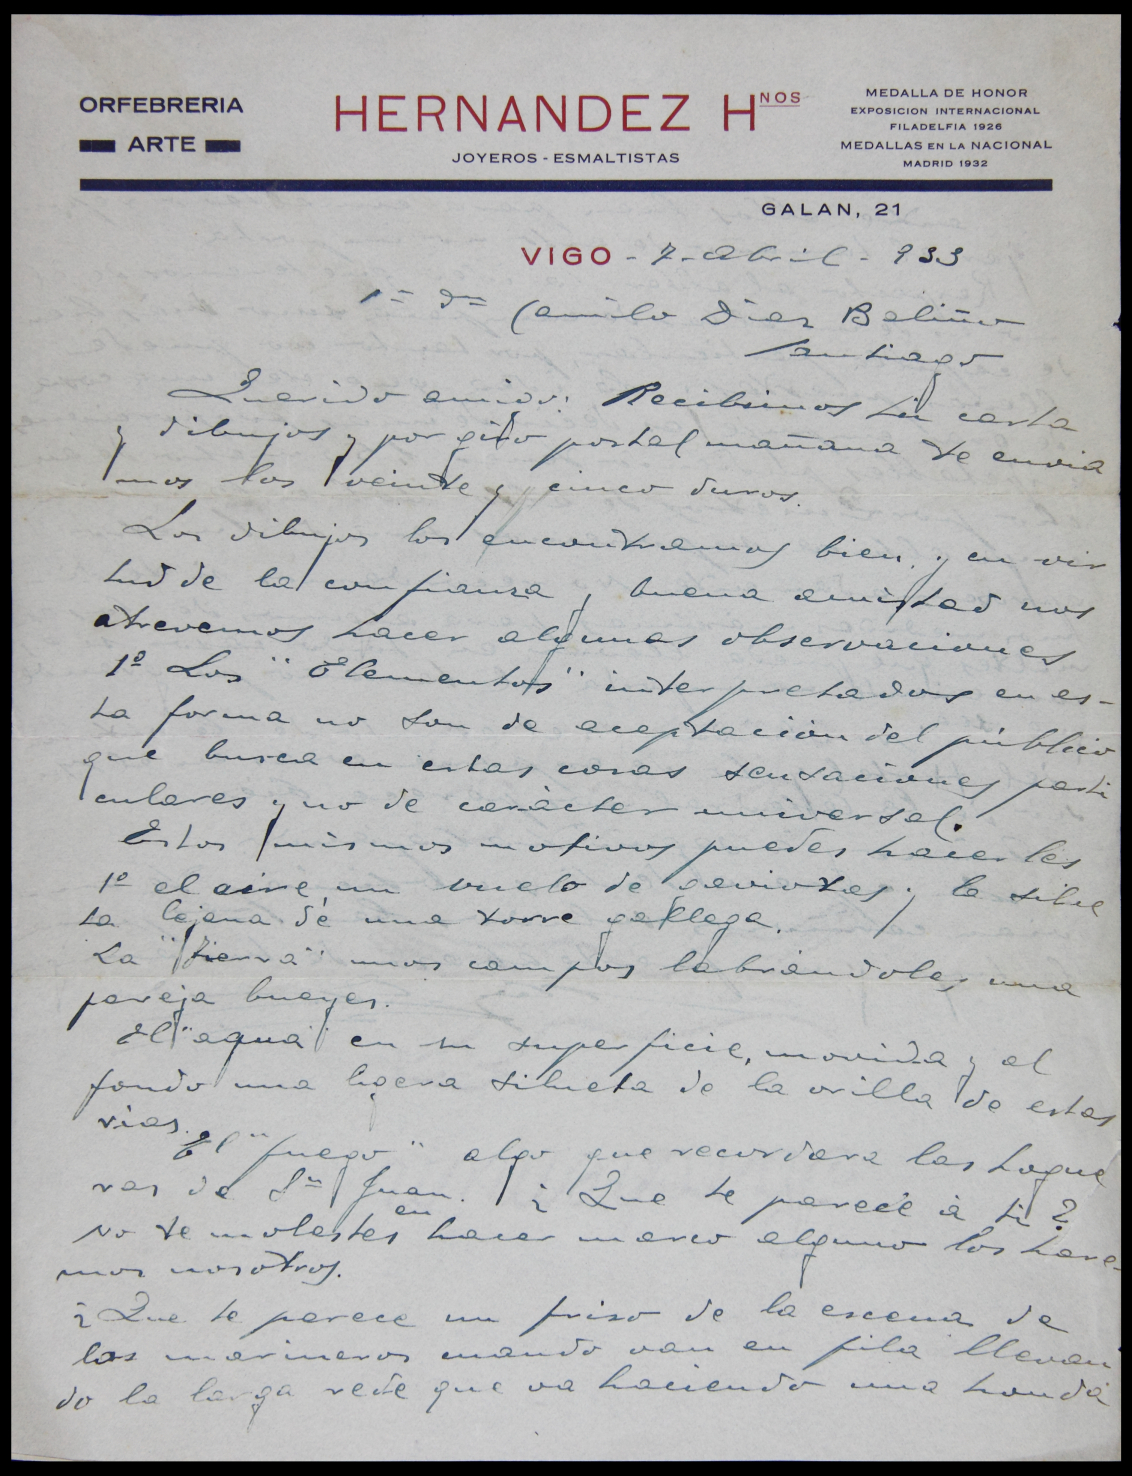 ORFEBRERIA
ARTE
HERNANDEZ HNOS
JOYEROS - ESMALTISTAS
MEDALLA DE HONOR
EXPOSICION INTERNACIONAL
FILADELFIA 1926
MEDALLAS EN LA NACIONAL
MADRID 1932
GALAN, 21
VIGO - 7 - Abril - 933
Camilo Diaz Baliño
Santiago
Querido amigo: Recibimos tu carta
y dibujos y por giro postal mañana te envia
mos los veinte y cinco duros.
Los dibujos los encontramos bien, y en vir
tud de la confianza y buena amistad nos
atrevemos hacer algunas observaciones
1º Los "Elementos" interpretados en es-
ta forma no son de aceptación del público
que busca en estas cosas sensaciones parti
culares y no de carácter universal.
Estos mismos motivos puedes hacerles
1º el aire, un vuelo de gaviotas y la silue
ta lejana de una torre gallega.
La "tierra" unos campos labrándoles una
pareja bueyes.
El "agua" en su superficie, movida y al
fondo una ligera silueta de la orilla de estas
rias.
El "fuego" algo que recordara las hogue
ras de Sn Juan. ¿Que te parece a ti?
No te molestes en hacer marco alguno los hare-
mos nosotros.
¿Que te parece un friso de la escena de
los marineros cuando van en fila llevan
do la larga rede que va haciendo una honda